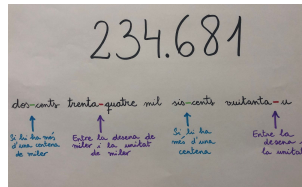 234.681
dos-cents trenta-quatre mil sis-cents vuitanta-u
Si hi ha més
d'una centena
de miler
Entre la desena de
miler i la unitat
de miler
Si hi ha
més d'una
centena
Entre la
desena i
la unitat